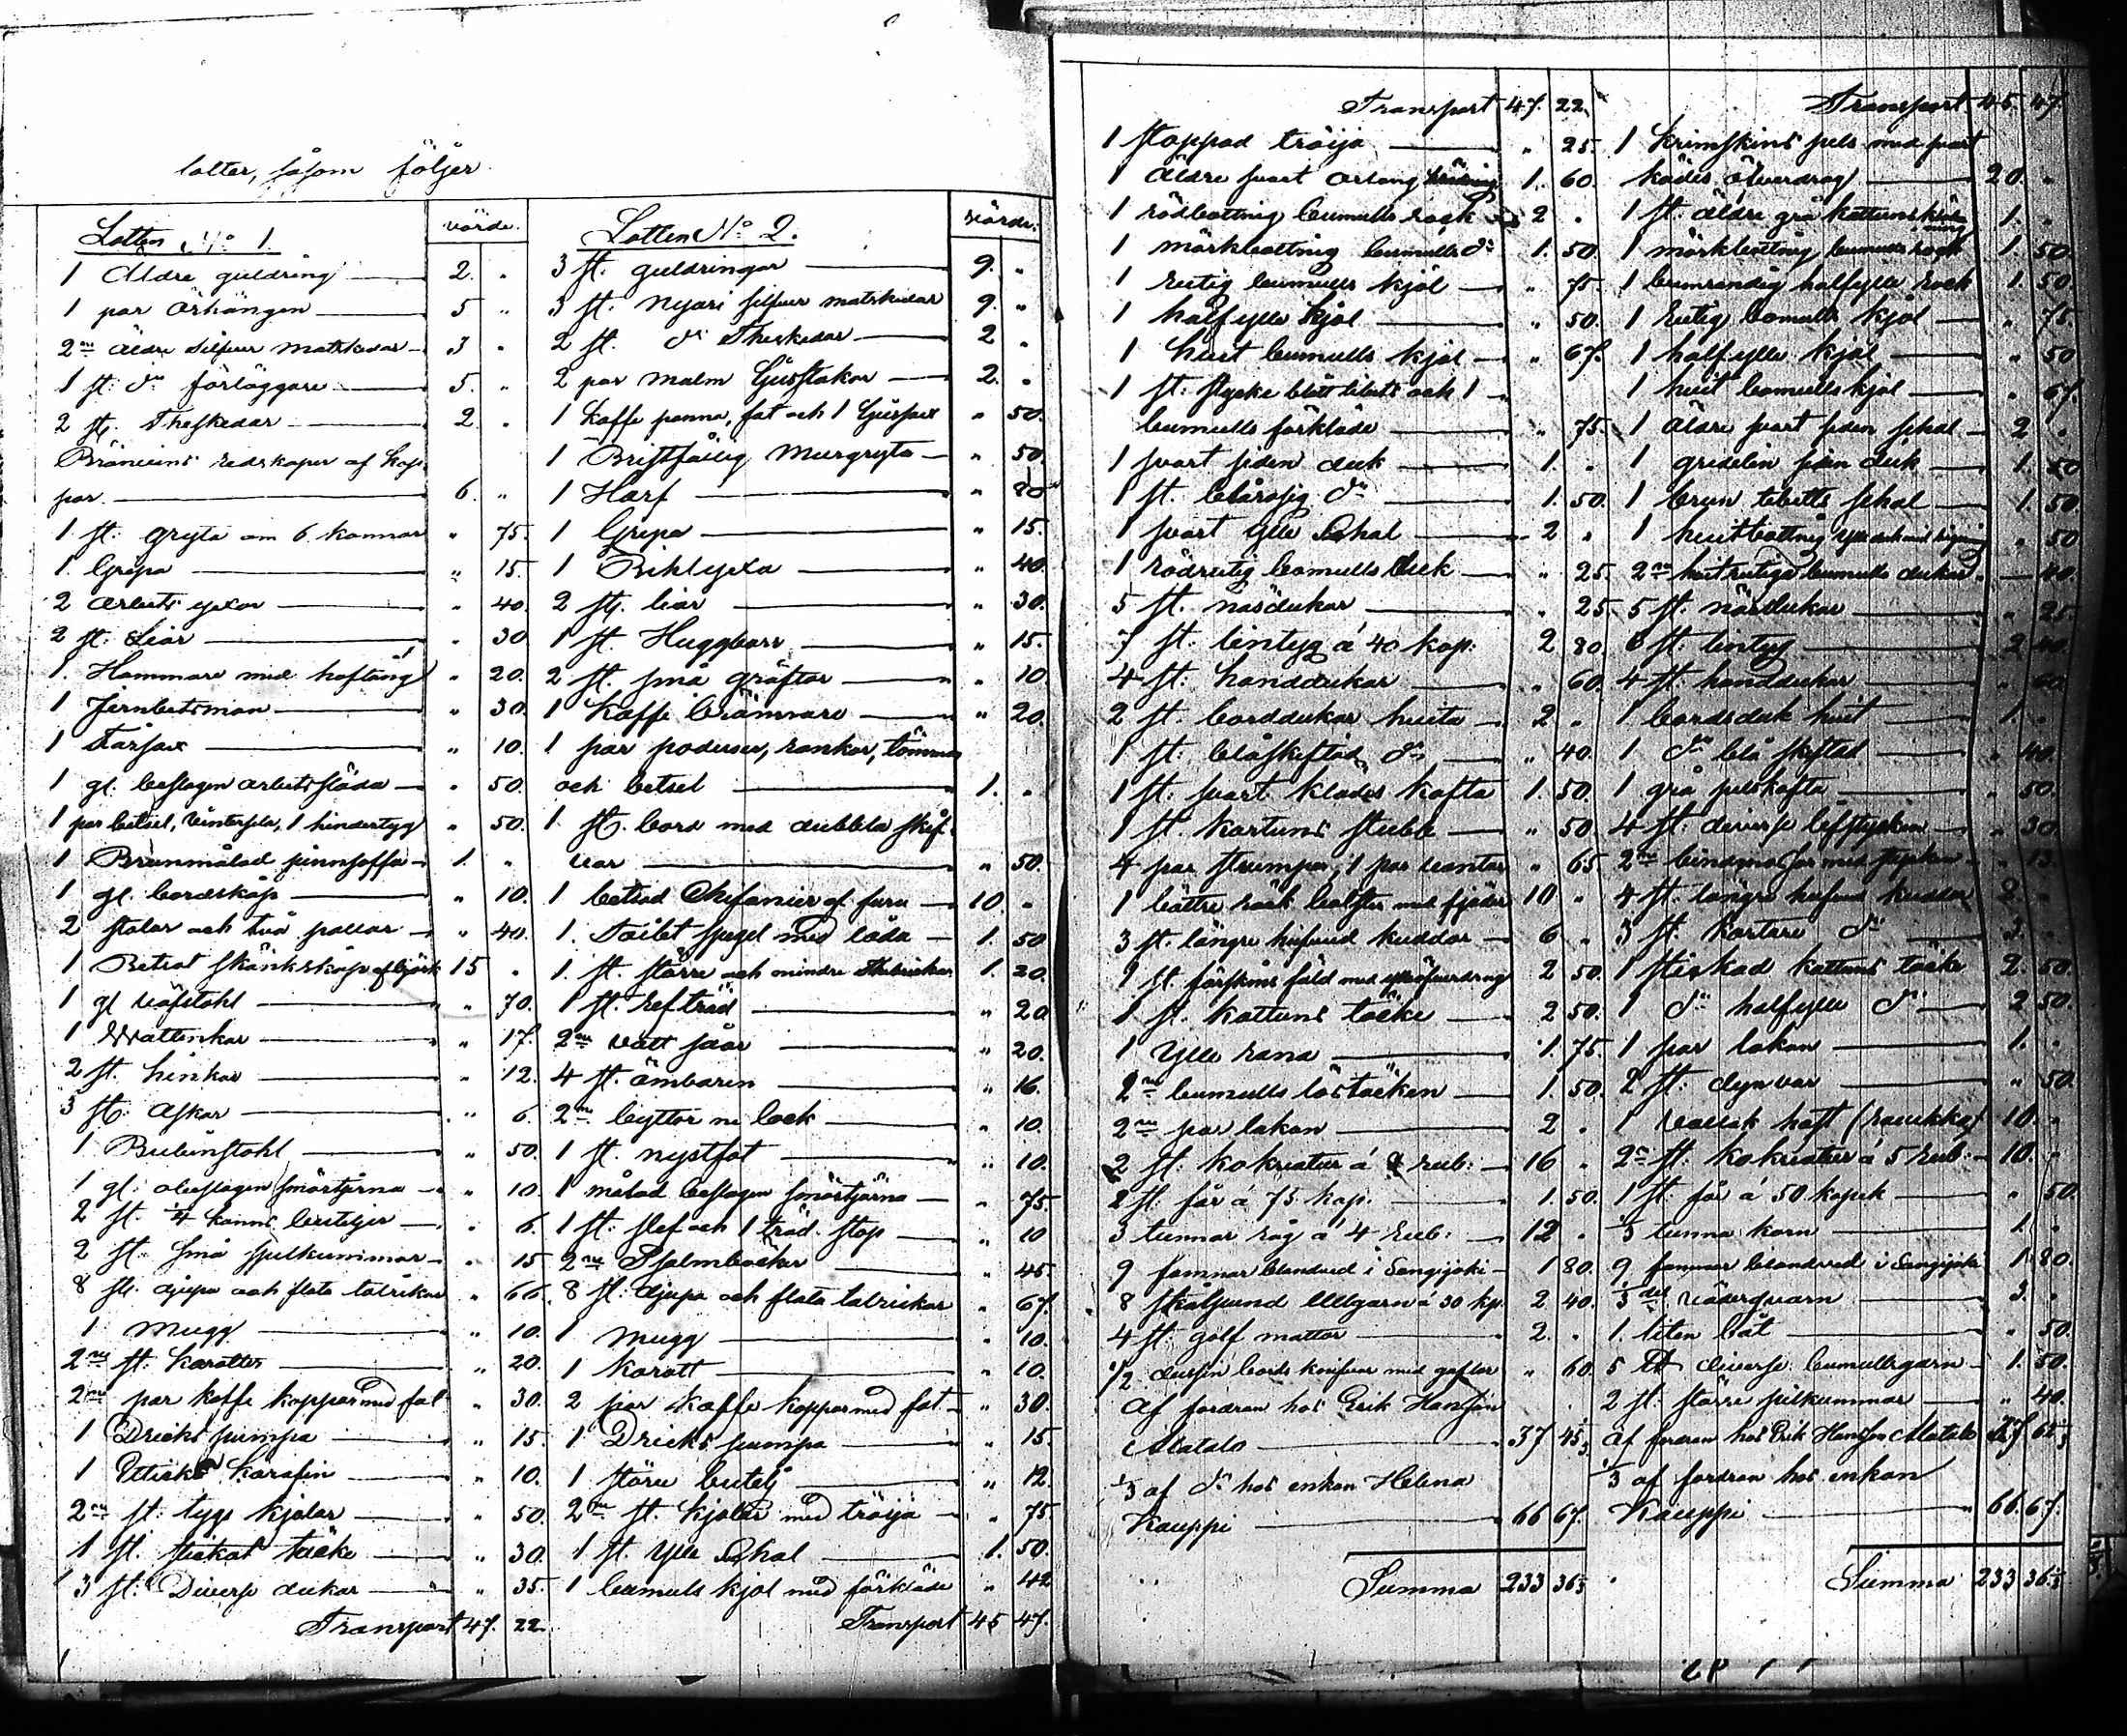 lotter, såsom följer.
Lotten No 1. värde.
1 Äldre guldring 2. "
1 par Örhängen 5 "
2ne Äldre silfver matskedar 3 "
1 st: do förläggare 5. "
2 st. Theskedar 2. "
Brännvins redskaper af kop-
par. 6. "
1 st: gryta om 6. kannor " 75.
1. Grepa " 15.
2 arbets yxor " 40.
2 st: Liar " 30
1. Hammare med hoftång " 20.
1 Jernbetsman " 30.
1 Fårsax " 10.
1 gl. beslagen arbetssläda " 50.
1 par betsel, 1 hindertyg " 50.
1 Brunmålad pinnsoffa 1. "
1 gl. bordskåp " 10.
2 stolar och två pallar " 40.
1 Betsat skänkskåp af björk 15 "
1 gl väfstohl " 70.
1 Wattenkar " 17.
2 st. hinkar " 12.
3 st: askar " 6.
1 Bubinstohl " 50.
1 gl: obeslagen smörtjerna " 10.
2 st. 1/4 kanns buteljer " 6.
2 st: små spilkummar " 15
8 st. djupa och flata talrikar " 66.
1 mugg " 10.
2ne st: karotter " 20.
2ne par kaffe koppar med fat " 30.
1 Dricks pumpa " 15.
1 Ättiks karafin " 10.
2ne st: tygs kjolar " 50.
1 st. stickat täcke " 30.
3 st: Diverse dukar " 35.
Transport 47. 22.
Lotten No 2. värde.
3 st. guldringar 9. "
3 st. nyare silfver matskedar 9. "
2 st. do Theskedar 2 "
2 par malm ljusstakar 2. "
1 kaffe panna, fat och 1 ljussax " 50.
1 Bristfällig murgryta " 50.
1 Harf " 80
1 Grepa " 15.
1 Bihlyxa " 40.
2 st. liar " 30.
1 st. Huggbarr " 15.
2 st. små gräftor " 10.
1 Kaffe brännare " 20.
1 par poderser, rankor, tömmar
och betsel 1. "
1. st. bord med dubbla skif-
vor " 50.
1 betsad Chefonier af furu 10. "
1. Toilet spegel med låda 1. 50
1. st. större och mindre 1. 20.
1 st. refträd " 20
2ne vatt såar " 20.
4 st. ämbaren " 16.
2ne byttor m lock " 10.
1 st. nystfot " 10.
1 målad beslagen smörtjärna " 75.
1 st: slef och 1 träd. stop " 10
2ne Psalmböcker " 45.
8 st: djupa och flata talrickar " 67.
1 mugg " 10.
1 Karott " 10.
2 par kaffe koppar med fat " 30.
1 Dricks pumpa " 15.
1 större butelj " 12.
2ne st. kjolar med tröija " 75.
1 st. Ylle Schal 1. 50.
1 bumuls kjol med förkläde " 42
Transport 45 47.
Transport 47. 22.
1 stoppad tröija " 25.
1 äldre svart orlang klädning 1. 60.
1 rödbottnig bumulls rock 2 "
1 mörkbottnig bumulls do 1. 50.
1 rutig bumulls kjol " 75.
1 halfylle kjol " 50.
1 hvit bumulls kjol " 67.
1 st: stycke blått tibets och 1
bumulls förkläde " 75.
1 svart siden duk 1. "
1 st. blårosig do 1. 50.
1 svart ylle Schal 2 "
1 rödrutig bomulls duk " 25.
5 st. näsdukar " 25.
7 st. lintyg á 40 kop. 2 80.
4 st: handdukar " 60.
2 st. borddukar hvita 2 "
1 st. blåskiftad do " 40.
1 st: svart klädes kofta 1. 50.
1 st. kartuns stubb " 50
4 par strumpor, 1 par vantar " 65.
1 bättre bolster med fjäder 10 "
3 st. längre hufvud kuddar 6 "
1 st. fårskins fäld med öfverdrag 2 50.
1 st. kattuns täcke 2 50.
1 Ylle rana 1. 75.
2ne bumulls löstäcken 1. 50.
2ne par lakan 2 "
2 st: kokreatur á 8 rub: 16 "
2 st. får á 75 kop. 1. 50.
3 tunnor råg á 4 Rub: 12 "
9 famnar blandved i Sangijoki 1 80.
8 skålpund Ullgarn á 30 kp. 2 40.
4 st: golf mattor 2. "
1/2 dussin bords knifvar med gafler " 60.
Af fordran hos Erik Hansson
Matalo 37 45 1/3
1/3 af do hos enkan Helena
Kauppi 66 67.
Summa 233 36 1/3
Transport 45. 47.
1 krimskins pels med svart
klädes öfverdrag 20. "
1 st. äldre grå kattunsklädning 1. "
1 mörkbottnig bumulls rock 1. 50.
1 bumrandig halfylle rock 1. 50.
1 rutig bomulls kjol " 75.
1 halfylle kjol " 50
1 hvit bomullskjol " 67.
1 äldre svart siden schal 2 "
1 gridelin siden duk 1. 50
1 brun tibetts schal 1. 50.
1 hvitbottnig " 50
2ne hvitrutiga bumulls dukar " 40.
5 st. näsdukar " 25.
6 st: lintyg 2 40.
4 st. handdukar " 60
1 bordsduk hvit 1. "
1 do blå skiftad " 40.
1 grå pelskofta " 50.
4 st: diverse lifstycken " 30.
2ne bindmössor med stycken " 13.
4 st. längre hufvud kuddar 2. "
3 st. kortare do 3. "
1 stickad kattuns täcke 2. 50.
1 do halfylle do 2 50.
1 par lakan 1. "
2 st: dynvar " 50.
1 vallak häst (ruukko) 10. "
2ne st. kokreatur á 5 rub. 10. "
1 st. får á 50 kopek " 50.
1/3 tunna korn 1. "
9 famnar blandved i Sangijoki 1 80.
1/3 del väderqvarn 3. "
1. liten båt " 50.
5 ℔ diverse bumullsgarn 1. 50.
2 st. större spilkummar " 40.
af fordran hos Erik Hansson Matalo
1/3 af fordran hos enkan
Kauppi 66. 67.
Summa 233 36 1/3